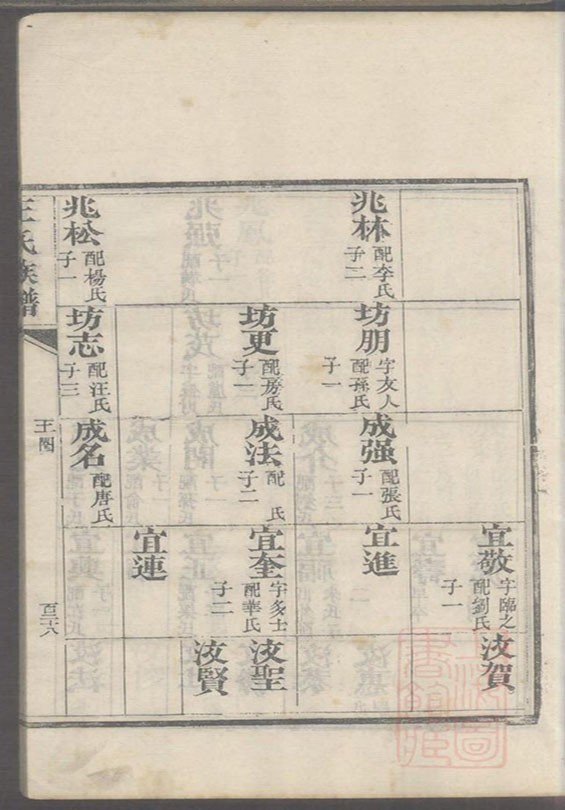 兆林
配李氏
子二
兆松
配楊氏
子一
坊朋
字友人
配孫氏
子一
坊更
配房氏
子一
坊志
配汪氏
子三
成强
配張氏
子一
成法
配　氏
子二
成名
配唐氏
宜敬
字臨之
配劉氏
子一
宜進
宜奎
字多士
配華氏
子二
宜連
汝賀
汝聖
汝賢
王氏族譜
王圖
百三十六